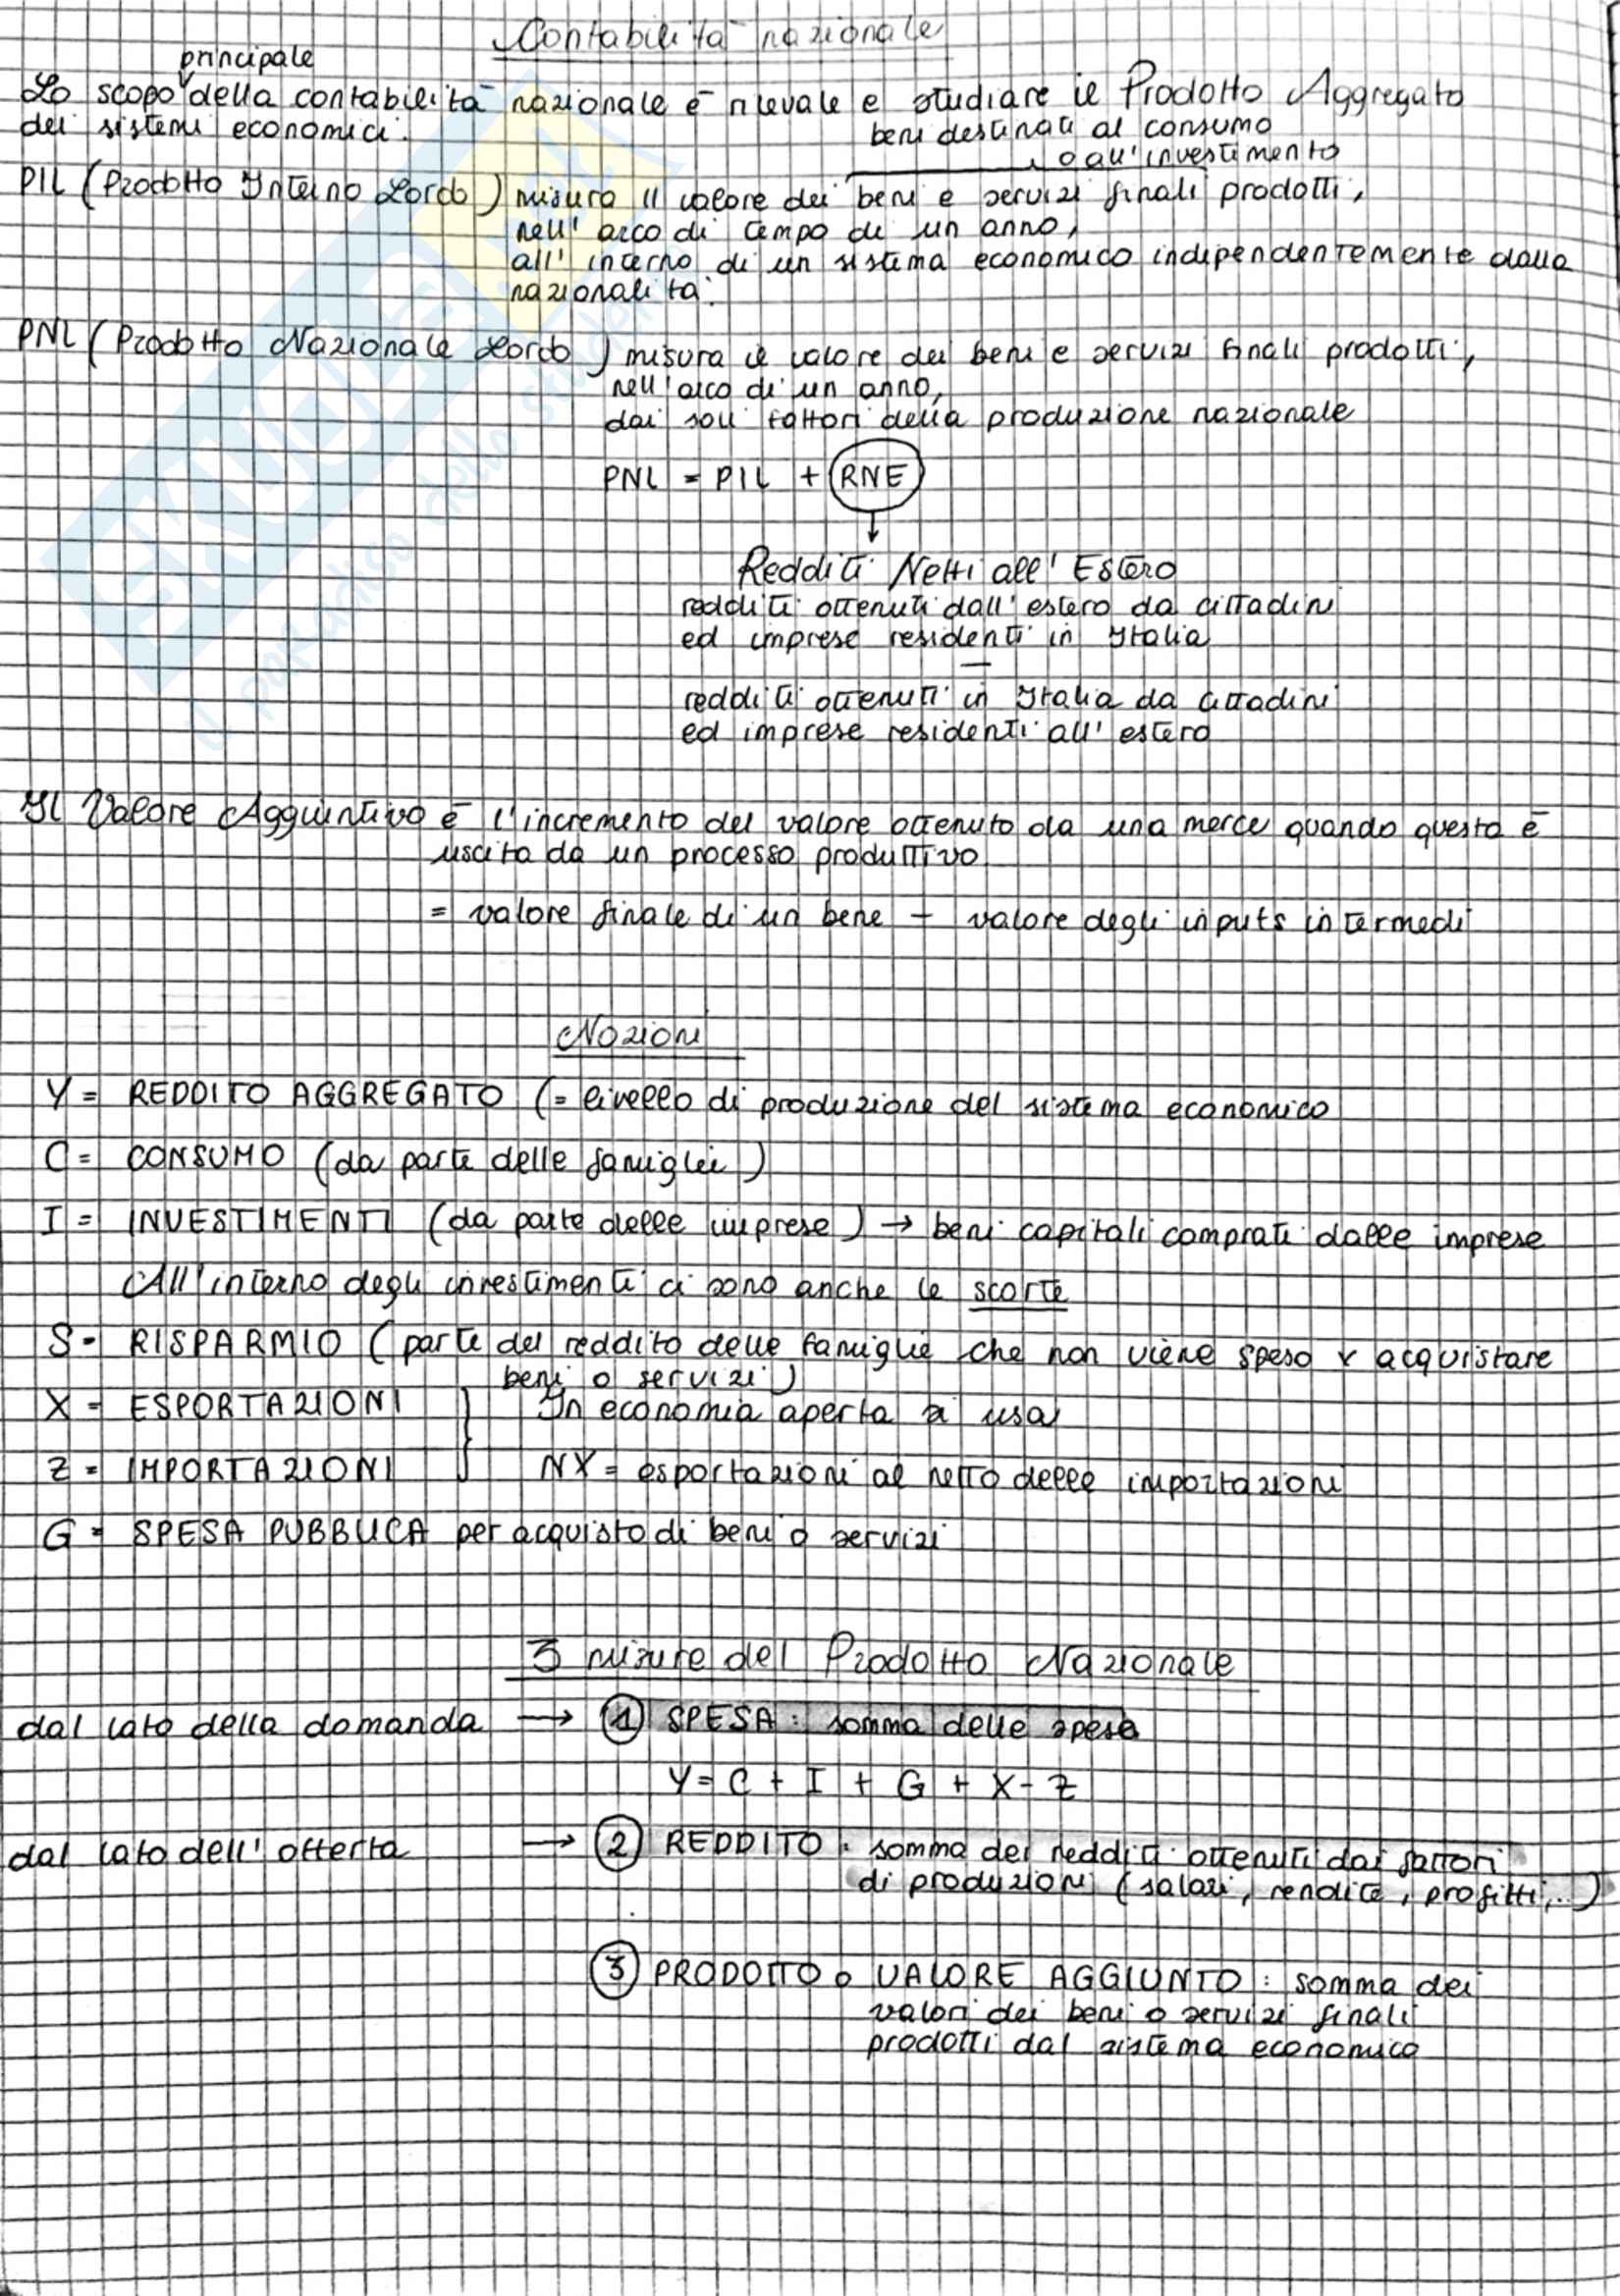 Contabilità nazionale
principale
Lo scopo della contabilità nazionale è rilevale e studiare il Prodotto Aggregato
dei sistemi economici.
beni destinati al consumo
o all'investimento
PIL (Prodotto Interno Lordo) misura il valore dei beni e servizi finali prodotti,
nell'arco di tempo di un anno,
all'interno di un sistema economico indipendentemente dalla
nazionalità.
PNL (Prodotto Nazionale Lordo) misura il valore dei beni e servizi finali prodotti,
nell'arco di un anno,
dai soli fattori della produzione nazionale
PNL = PIL + RNE
Redditi Netti all'Estero
redditi ottenuti dall'estero da cittadini
ed imprese residenti in Italia
—
redditi ottenuti in Italia da cittadini
ed imprese residenti all'estero
Il Valore Aggiuntivo è l'incremento del valore ottenuto da una merce quando questa è
uscita da un processo produttivo
= valore finale di un bene - valore degli inputs intermedi
Nozioni
Y = REDDITO AGGREGATO (= livello di produzione del sistema economico
C = CONSUMO (da parte delle famiglie)
I = INVESTIMENTI (da parte delle imprese) → beni capitali comprati dalle imprese
All'interno degli investimenti ci sono anche le scorte
S = RISPARMIO (parte del reddito delle famiglie che non viene speso x acquistare
beni o servizi)
X = ESPORTAZIONI } In economia aperta si usa
Z = IMPORTAZIONI NX = esportazioni al netto delle importazioni
G = SPESA PUBBLICA per acquisto di beni o servizi
3 misure del Prodotto Nazionale
dal lato della domanda → 1 SPESA: somma delle spese
Y = C + I + G + X - Z
dal lato dell'offerta → 2 REDDITO: somma dei redditi ottenuti dai fattori
di produzioni (salari, rendite, profitti,...)
3 PRODOTTO o VALORE AGGIUNTO: somma dei
valori dei beni o servizi finali
prodotti dal sistema economico